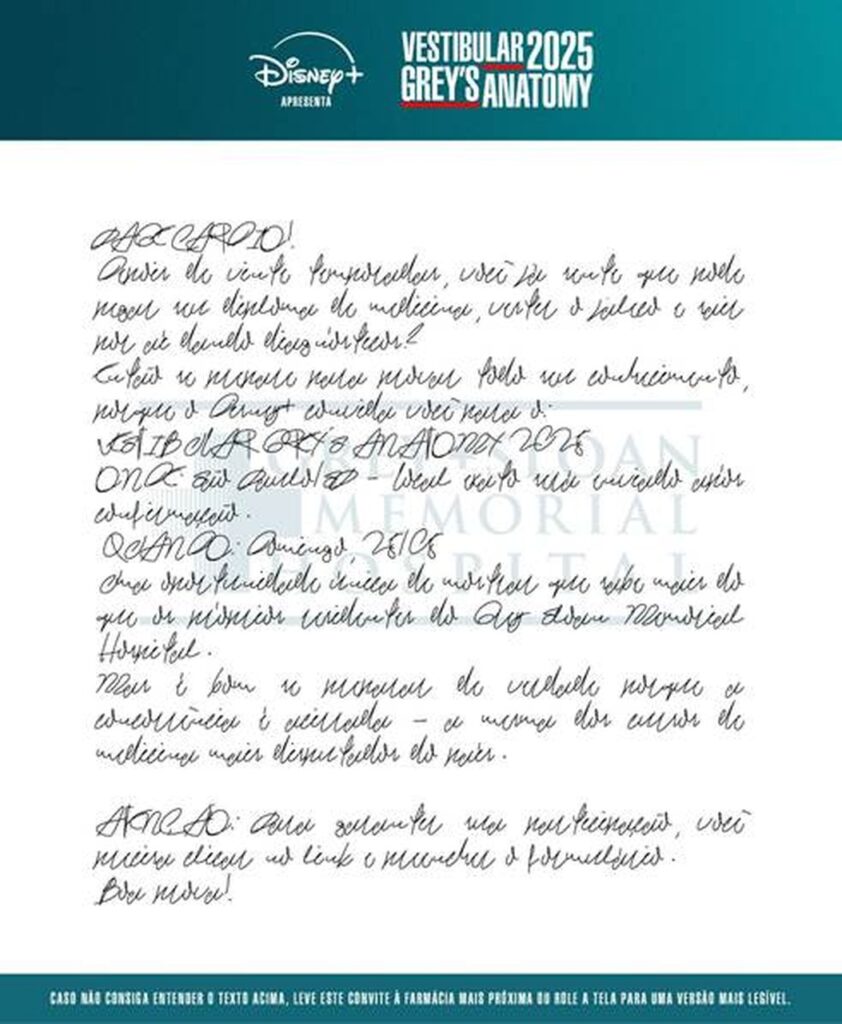 Disney+
APRESENTA
VESTIBULAR 2025
GREY'S ANATOMY
Depois de vinte temporadas, você já sente que pode
pegar seu diploma de medicina, vestir o jaleco e sair
por aí dando diagnósticos?
Então se prepare para provar todo seu conhecimento,
porque o Disney+ convida você para o:
VESTIBULAR GREY'S ANATOMY 2025
ONDE: São Paulo/SP – local exato será enviado após
confirmação.
QUANDO: Domingo, 25/05
Uma oportunidade única de mostrar que sabe mais do
que os próprios residentes do Grey Sloan Memorial
Hospital.
Mas é bom se preparar de verdade porque a
concorrência é acirrada – a mesma dos cursos de
medicina mais disputados do país.
ATENÇÃO: Para garantir sua participação, você
precisa clicar no link e preencher o formulário.
Boa prova!
GREY+SLOAN
MEMORIAL
HOSPITAL
CASO NÃO CONSIGA ENTENDER O TEXTO ACIMA, LEVE ESTE CONVITE À FARMÁCIA MAIS PRÓXIMA OU ROLE A TELA PARA UMA VERSÃO MAIS LEGÍVEL.